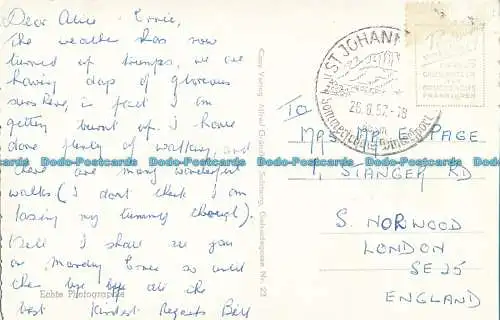 Dear Alice + Ernie,
The weather has now
turned up trumps, we are
having days of glorious
sunshine, in fact I am
getting burnt up. I have
done plenty of walking, and
there are many wonderful
walks (I dont think I am
losing my tummy though).
Well I shall see you
on Monday Ernie so until
then bye bye all the
best kindest Regards Bill
Echte Photographie
Cosy Verlag Alfred Gründler, Salzburg, Gstättengasse Nr. 22
ST. JOHANN
25.8.52-18
TO
MRS MR E PAGE
1, STANGER RD
S. NORWOOD
LONDON
SE 25
ENGLAND
Docs-Postcards Docs-Postcards Docs-Postcards Docs-Postcards Docs-Postcards